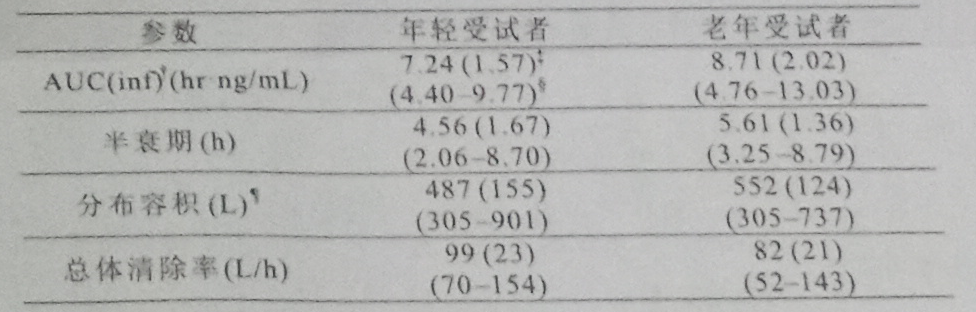 参数 年轻受试者 老年受试者
7.24 (1.57)‡ 8.71 (2.02)
AUC(inf)†(hr ng/mL)
(4.40-9.77)§ (4.76-13.03)
4.56 (1.67) 5.61 (1.36)
半衰期(h)
(2.06-8.70) (3.25-8.79)
487 (155) 552 (124)
分布容积(L)¶
(305-901) (305-737)
99 (23) 82 (21)
总体清除率(L/h)
(70-154) (52-143)